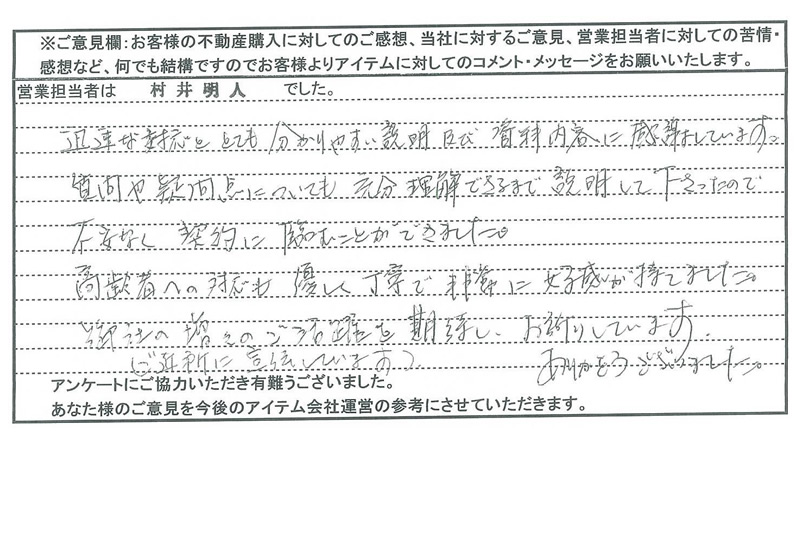 ※ご意見欄：お客様の不動産購入に対してのご感想、当社に対するご意見、営業担当者に対しての苦情・
感想など、何でも結構ですのでお客様よりアイテムに対してのコメント・メッセージをお願いいたします。
営業担当者は 村井明人 でした。
迅速な対応と とても 分かりやすい説明 及び 資料内容に 感謝しています。
質問や疑問点についても 充分 理解できるまで 説明して 下さったので
不安なく 契約に 臨むことができました。
高齢者への対応も 優しく 丁寧で 非常に 好感が 持てました。
御社の 増々の ご活躍を 期待し、お祈りしています。
(ご近所に 宣伝しています)
ありがとうございました。
アンケートにご協力いただき有難うございました。
あなた様のご意見を今後のアイテム会社運営の参考にさせていただきます。